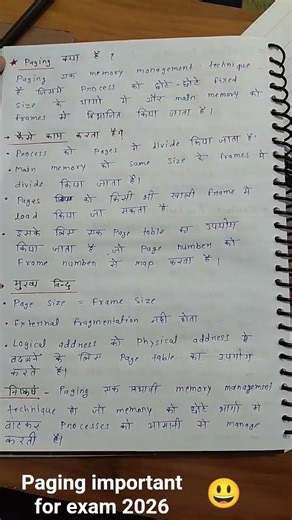 ★ Paging क्या है ?
Paging एक memory management technique
है जिसमें Process को छोटे-छोटे fixed
Size के भागों में और main memory को
frames में विभाजित किया जाता है।
→ कैसे काम करता है?
• Process को Pages में divide किया जाता है.
• Main memory को same size के frames में
divide किया जाता है।
• Pages को किसी भी खाली Frame में
load किया जा सकता है
• इसके लिए एक Page table का उपयोग
किया जाता है जो Page number को
Frame number से map करता है।
→ मुख्य बिन्दु
• Page Size = Frame Size
• External Fragmentation नहीं होता
• Logical address को Physical address में
बदलने के लिए Page table का उपयोग
करते हैं।
निष्कर्ष - Paging एक प्रभावी memory management
technique है जो memory को छोटे भागों में
बांटकर Processes को आसानी से manage
करती है।
Paging important
for exam 2026 😃